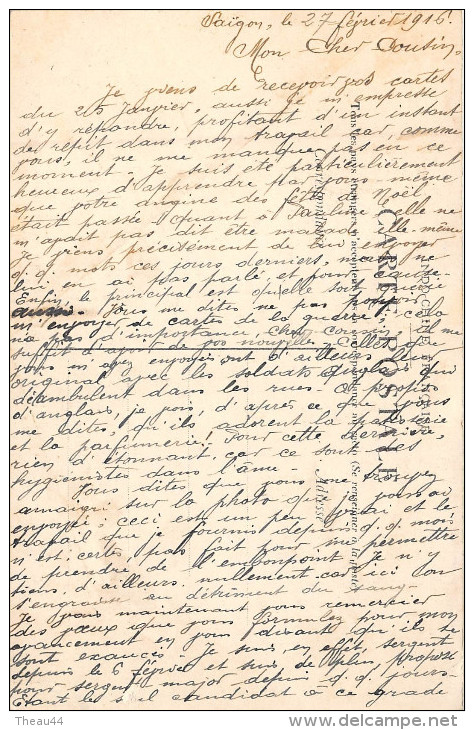 Saïgon, le 27 février 1916.
Mon Cher Cousin,
Je viens de recevoir vos cartes
du 25 Janvier, aussi je m'empresse
d'y répondre, profitant d'un instant
de répit dans mon travail car, comme
vous, il ne me manque pas en ce
moment. Je suis été particulièrement
heureux d'apprendre par vous même
que votre angine des fêtes de Noël
était passée quant à Pauline elle ne
m'avait pas dit être malade elle-même
Je viens précisément de lui envoyer
q.q. mots ces jours derniers, mais ne
lui en ai pas parlé et pour cause.
Enfin, le principal est qu'elle soit guérie
aussi. Vous me dites ne pas pouvoir
m'envoyer de cartes de la guerre : cela
n'a pas d'importance, cher cousin, il me
suffit d'avoir de vos nouvelles. Celles que
vous m'avez envoyées ont d'ailleurs leur
original avec les soldats anglais qui
déambulent dans les rues. A propos
d'anglais, je vois, d'après ce que vous
me dites, qu'ils adorent la
et la parfumerie. Pour cette dernière,
rien d'étonnant, car ce sont des
hygiénistes dans l'âme.
Vous dites que vous me trouvez
amaigri sur la photo que je vous ai
envoyée : ceci est un peu vrai et le
travail que je fournis depuis q.q. mois
n'est certes pas fait pour me permettre
de prendre de l'embonpoint. Je n'y
tiens, d'ailleurs nullement car ici on
s'engraisse au détriment du sang.
Je vais maintenant vous remercier
des vœux que vous formulez pour mon
avancement en vous disant qu'ils se
sont exaucés. Je suis en effet, sergent
depuis le 6 février et suis de plus proposé
pour sergent-major depuis q.q. jours.
Etant le seul candidat à ce grade
CARTE POSTALE
Tous les pays étrangers n'acceptent pas la correspondance au recto. (Se renseigner à la poste)
Correspondance
Adresse
Theau44